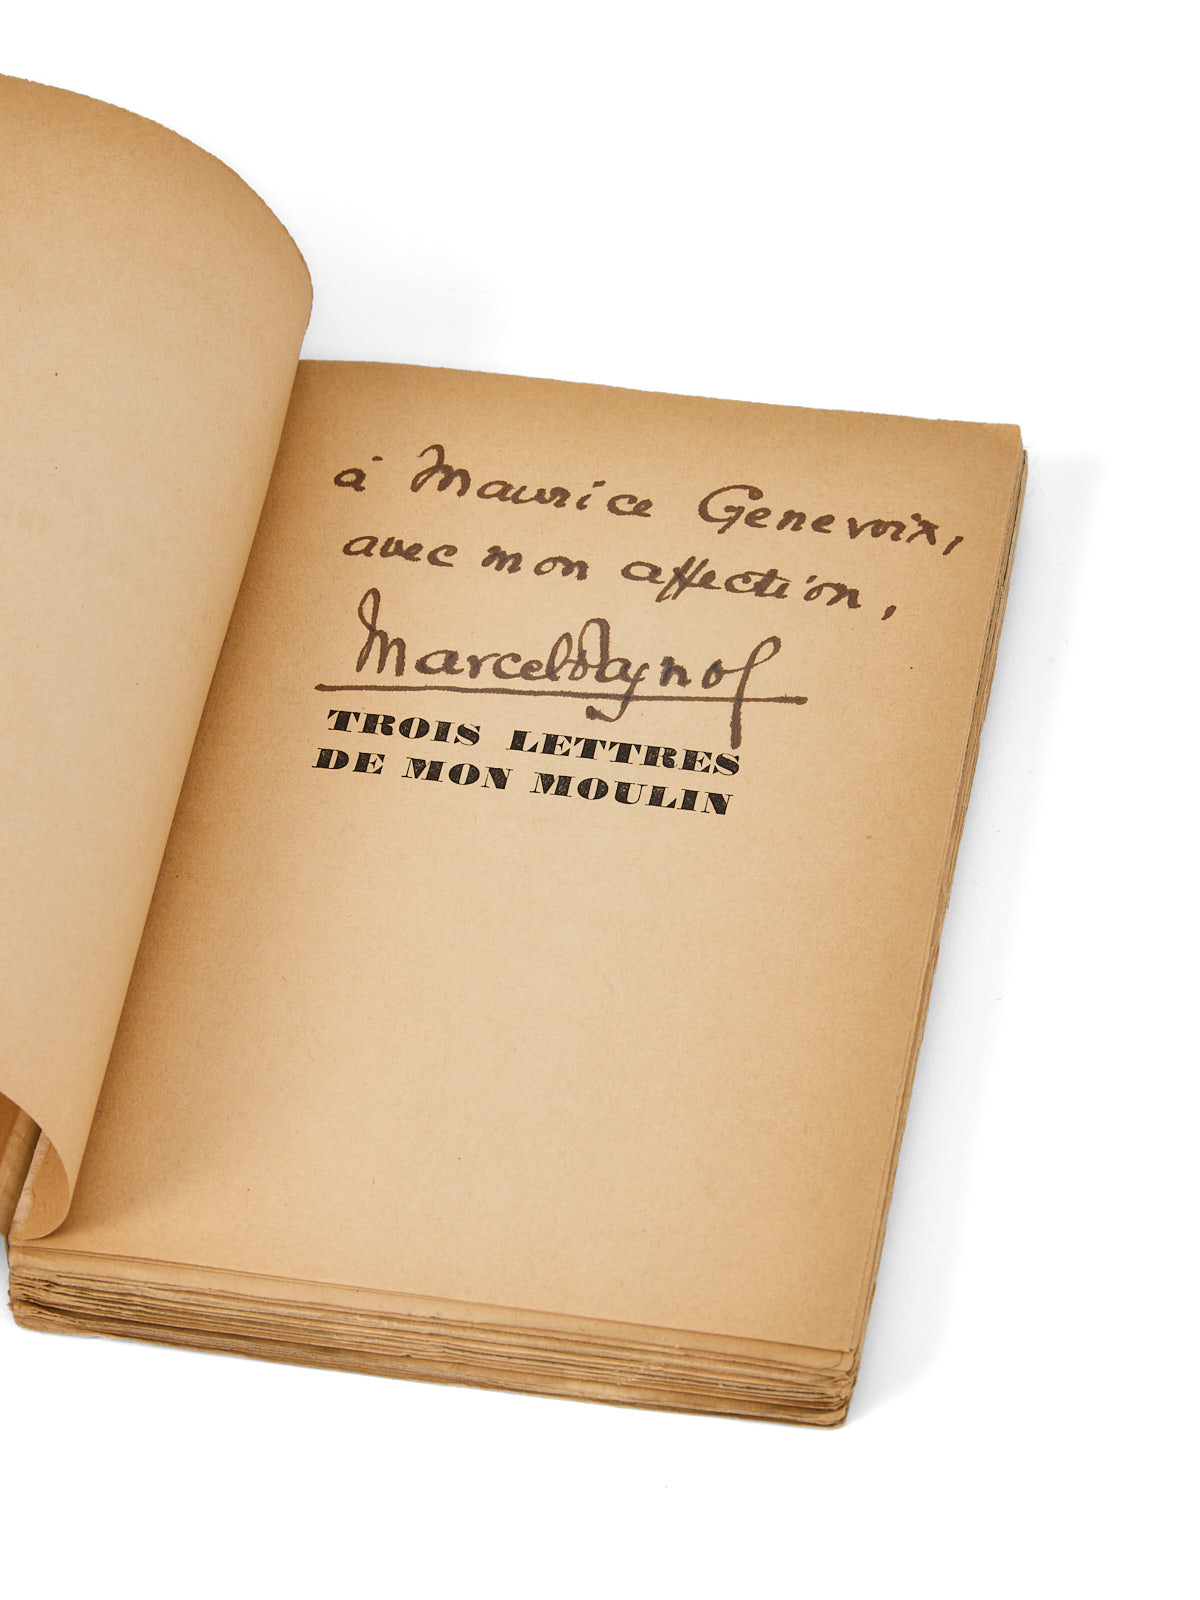 à Maurice Genevoix,
avec mon affection,
Marcel Pagnol
TROIS LETTRES
DE MON MOULIN